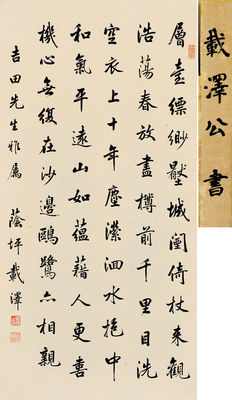 載澤公書
層臺縹緲壓城闉倚杖來觀
浩蕩春放盡樽前千里目洗
空衣上十年塵瀠洄水抱中
和氣平遠山如蘊藉人更喜
機心無復在沙邊鷗鷺亦相親
吉田先生雅屬 蔭坪載澤